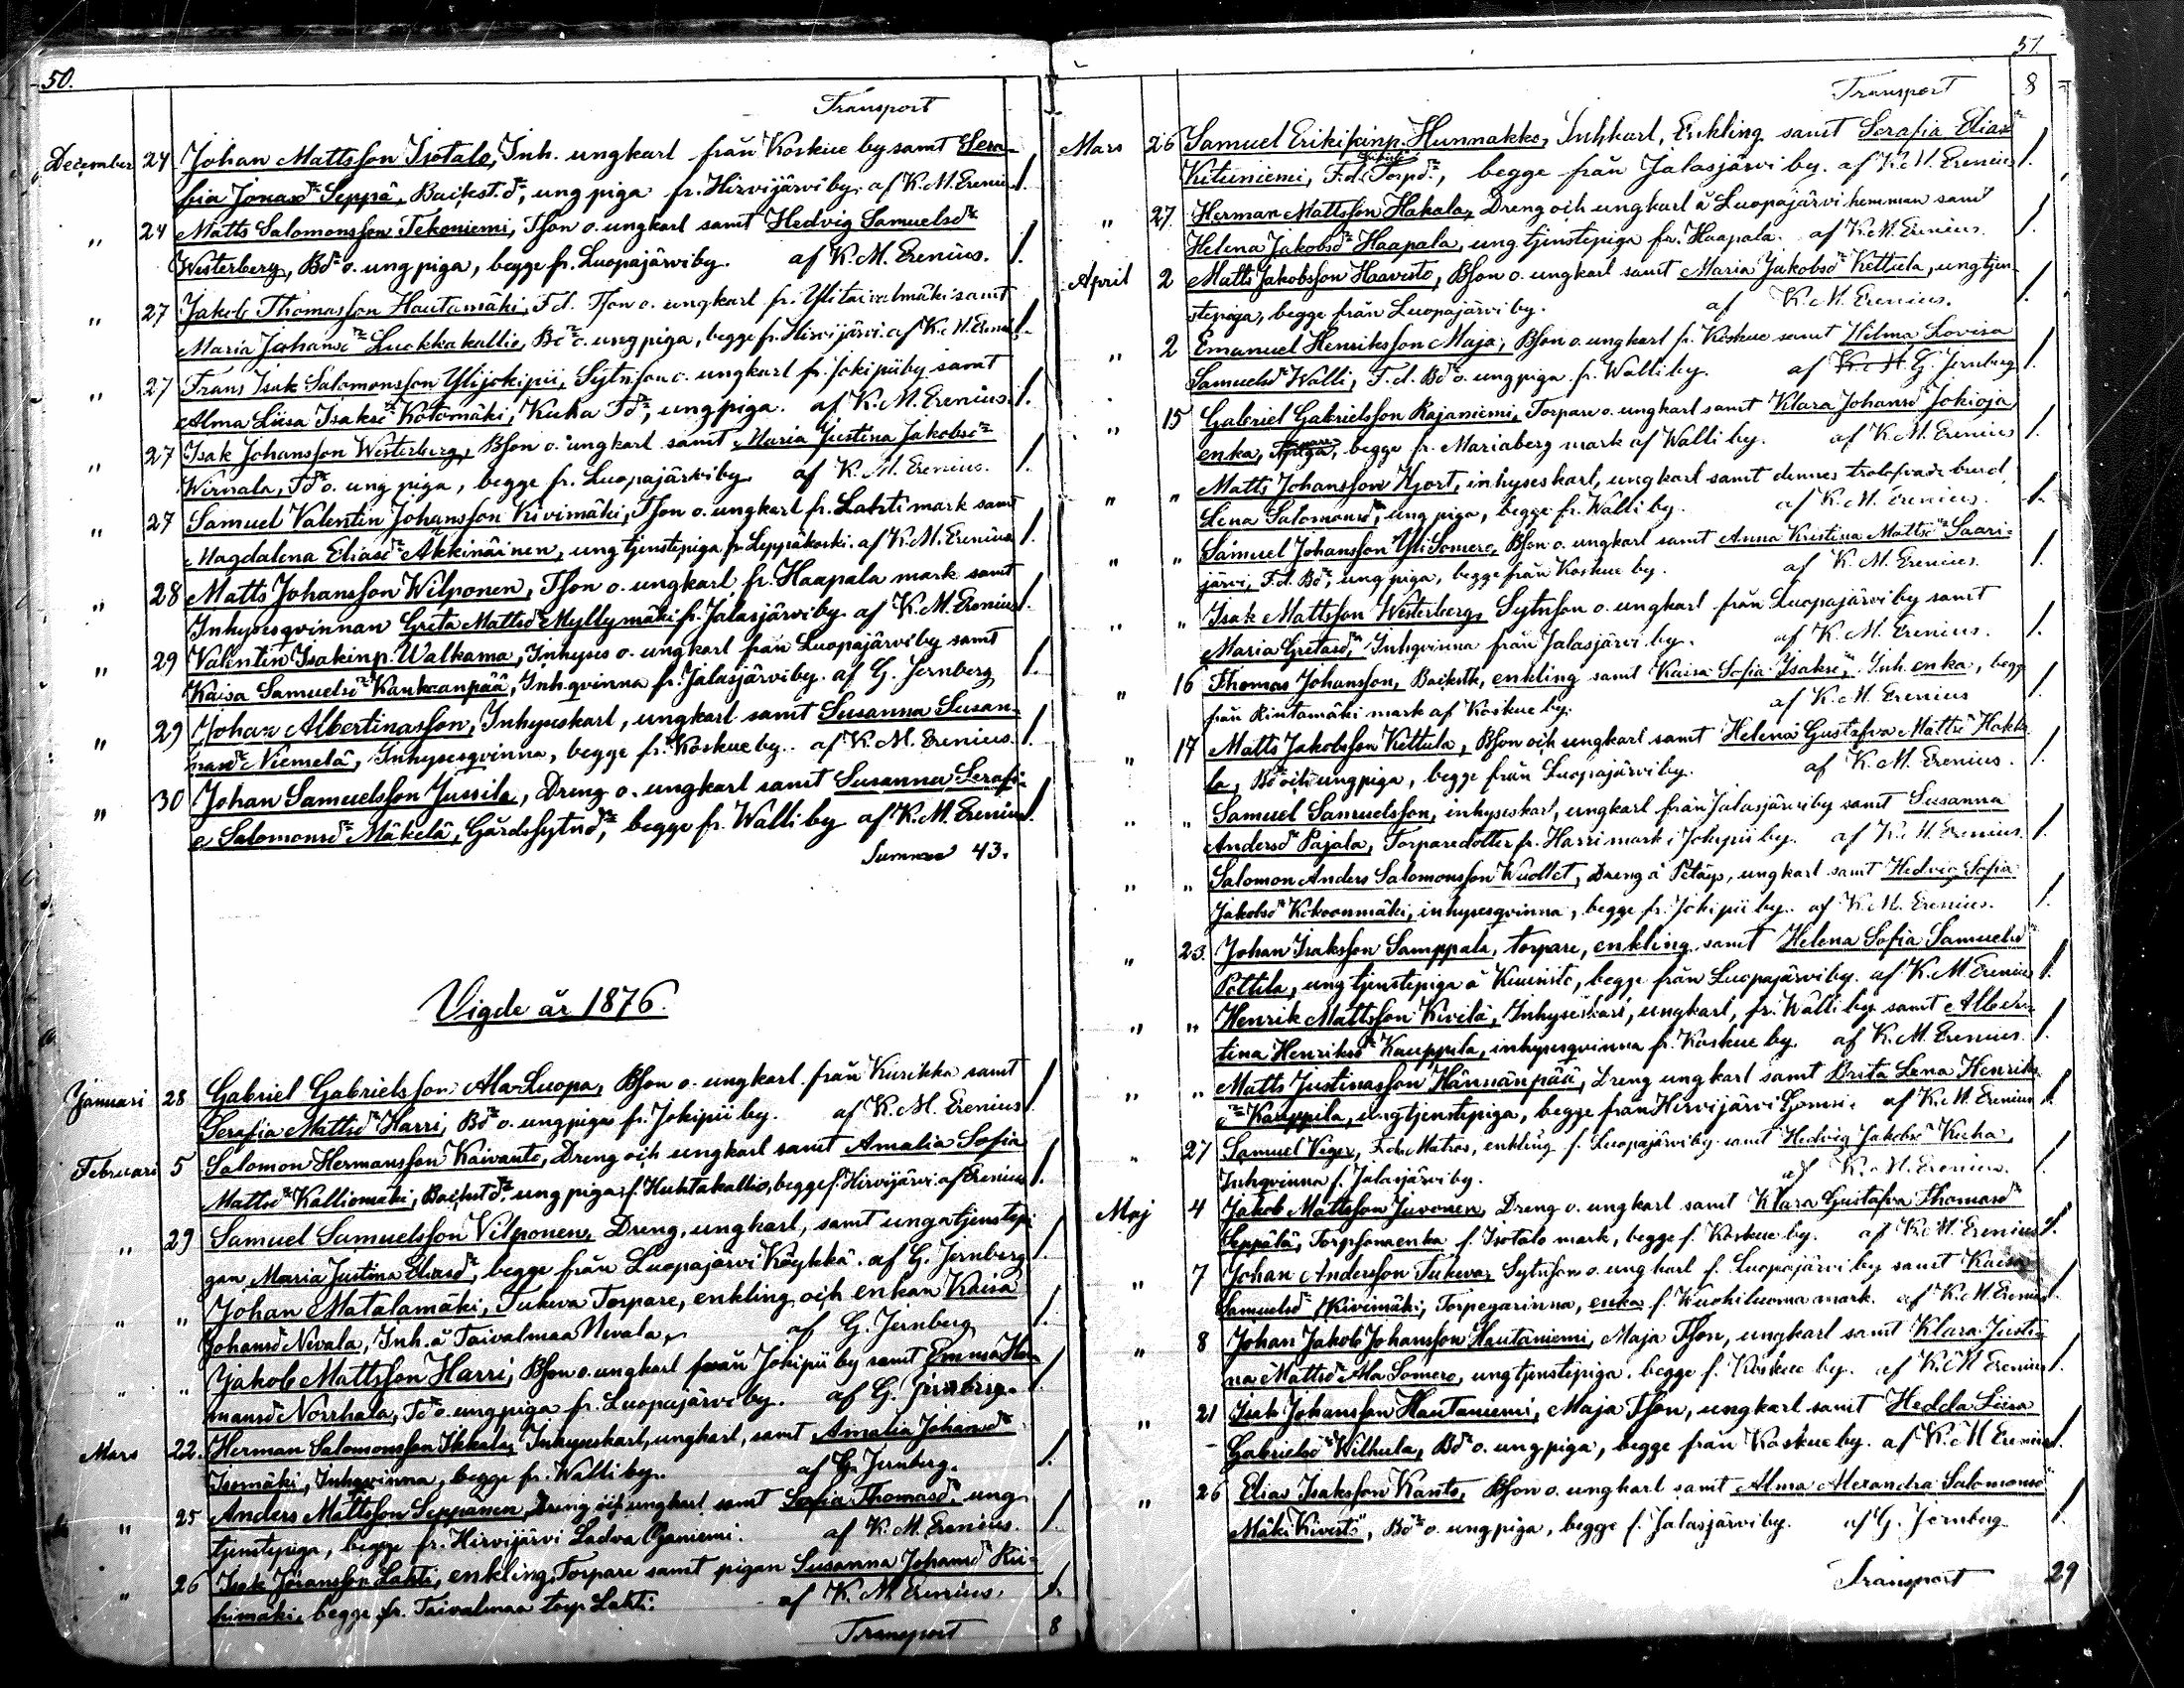 50.
Transport
December 24 Johan Mattsson Isotalo, Inh. ungkarl från Koskue by samt Sera-
fia Jonasdr Seppä, Backst.dr, ung piga fr. Hirvijärvi by. af K. M. Erenius 1.
" 24 Matts Salomonsson Tekoniemi, Tson o. ungkarl samt Hedvig Samuelsdr
Westerberg, Bdr o. ung piga, begge fr. Luopajärvi by. af K. M. Erenius. 1.
" 27 Jakob Thomasson Hautamäki, F.d. Tson o. ungkarl fr. Ylitaivalmäki samt
Maria Johansdr Luokkakallio, Bdr o. ung piga, begge fr. Hirvijärvi. af K. M. Erenius 1.
" 27 Frans Isak Salomonsson Ylijokipii, Sytnson o. ungkarl fr. Jokipii by samt
Alma Liisa Isaksdr Kotomäki, Kuha Tdr, ung piga. af K. M. Erenius. 1.
" 27 Isak Johansson Westerberg, Bson o. ungkarl samt Maria Justina Jakobsdr
Wirnala, Tdr o. ung piga, begge fr. Luopajärvi by. af K. M. Erenius. 1.
" 27 Samuel Valentin Johansson Kivimäki, Tson o. ungkarl fr. Lahti mark samt
Magdalena Eliasdr Akkinäinen, ung tjenstepiga fr. Leppäkoski. af K. M. Erenius 1.
" 28 Matts Johansson Wilponen, Tson o. ungkarl fr. Haapala mark samt
Inhysesqvinnan Greta Mattsdr Myllymäki fr. Jalasjärvi by. af K. M. Erenius 1.
" 29 Valentin Isakinp. Walkama, Inhyses o. ungkarl från Luopajärvi by samt
Kaisa Samuelsdr Kankaanpää, Inh.qvinna fr. Jalasjärvi by. af G. Jernberg 1.
" 29 Johan Albertinasson, Inhyseskarl, ungkarl samt Susanna Susan-
nasdr Niemelä, Inhysesqvinna, begge fr. Koskue by. af K. M. Erenius. 1.
" 30 Johan Samuelsson Jussila, Dreng o. ungkarl samt Susanna Serafi-
a Salomonsdr Mäkelä, Gårdssytndr, begge fr. Walli by af K. M. Erenius 1.
Summa 43.
Vigde år 1876.
Januari 28 Gabriel Gabrielsson Ala-Luopa, Bson o. ungkarl från Kurikka samt
Serafia Mattsdr Harri, Bdr o. ung piga fr. Jokipii by. af K. M. Erenius 1.
Februari 5 Salomon Hermansson Kaivanto, Dreng och ungkarl samt Amalia Sofia
Mattsdr Kalliomäki, Backstdr ung piga f. Huhtakallio, begge f. Hirvijärvi. af Erenius 1.
" 29 Samuel Samuelsson Vilponen, Dreng, ungkarl, samt unga tjenstepi-
gan Maria Justina Eliasdr, begge från Luopajärvi Köykkä. af G. Jernberg 1.
" " Johan Matalamäki, Tukeva Torpare, enkling och enkan Kaisa
Johansdr Nevala, Inh. å Taivalmaa Nevala, af G. Jernberg 1.
" " Jakob Mattsson Harri, Bson o. ungkarl från Jokipii by samt Emma Her-
mansdr Norrhala, Tdr o. ung piga fr. Luopajärvi by. af G. Jernberg. 1.
Mars 22. Herman Salomonsson Ikkala, Inhyseskarl, ungkarl, samt Amalia Johansdr
Isomäki, Inhqvinna, begge fr. Walli by. af G. Jernberg. 1.
" 25 Anders Mattsson Seppänen, Dreng och ungkarl samt Sofia Thomasdr, ung
tjenstepiga, begge fr. Hirvijärvi Ladva Ojaniemi. af K. M. Erenius. 1.
" 26 Isak Jöransson Lahti, enkling, Torpare samt pigan Susanna Johansdr Kii-
himäki, begge fr. Taivalmaa torp Lahti. af K. M. Erenius. 1.
Transport 8
51.
Transport 8
Mars 26 Samuel Erikikinp. Hunnakko, Inhkarl, Enkling samt Serafia Eliasdr
Kituniemi, F.d. Torpdr, begge från Jalasjärvi by. af K. M. Erenius 1.
" 27. Herman Mattsson Hakala, Dreng och ungkarl å Luopajärvi hemman samt
Helena Jakobsdr Haapala, ung tjenstepiga fr. Haapala. af K. M. Erenius. 1.
April 2 Matts Jakobsson Haavisto, Bson o. ungkarl samt Maria Jakobsdr Kettula, ung tjen-
stepiga, begge från Luopajärvi by. af K. M. Erenius. 1.
" 2 Emanuel Henriksson Maja, Bson o. ungkarl fr. Koskue samt Wilma Lovisa
Samuelsdr Walli, F.d. Bdr o. ung piga fr. Walli by. af K. M. G. Jernberg 1.
" 15 Gabriel Gabrielsson Rajaniemi, Torpare o. ungkarl samt Klara Johansdr Jokioja
enka, begge fr. Mariaberg mark af Walli by. af K. M. Erenius 1.
" " Matts Johansson Hjort, inhyseskarl, ungkarl samt dennes trolofvade brud
Lena Salomonsdr, ung piga, begge fr. Walli by. af K. M. Erenius. 1.
" " Samuel Johansson Yli Somero, Bson o. ungkarl samt Anna Kristina Mattsdr Saari-
järvi, F.d. Bdr, ung piga, begge från Koskue by. af K. M. Erenius. 1.
" " Isak Mattsson Westerberg, Sytnson o. ungkarl från Luopajärvi by samt
Maria Gretasdr, Inhqvinna från Jalasjärvi by. af K. M. Erenius. 1.
" 16 Thomas Johansson, Backstk, enkling samt Kaisa Sofia Isaksdr, Inh. enka, begge
från Rintamäki mark af Koskue by. af K. M. Erenius 1.
" 17 Matts Jakobsson Kettula, Bson och ungkarl samt Helena Gustafva Mattsdr Hakka-
la, Bdr och ung piga, begge från Luopajärvi by. af K. M. Erenius. 1.
" " Samuel Samuelsson, inhyseskarl, ungkarl från Jalasjärvi by samt Susanna
Andersdr Pajala, Torparedotter fr. Harri mark i Jokipii by. af K. M. Erenius. 1.
" " Salomon Anders Salomonsson Wuollet, Dreng å Petäys, ungkarl samt Hedvig Sofia
Jakobsdr Kokoonmäki, inhysesqvinna, begge fr. Jokipii by. af K. M. Erenius. 1.
" 23. Johan Isaksson Samppala, torpare, enkling samt Helena Sofia Samuelsdr
Pettila, ung tjenstepiga å Kuusisto, begge från Luopajärvi by. af K. M. Erenius 1.
" " Henrik Mattsson Kivilä, Inhyseskarl, ungkarl, fr. Walli by samt Alber-
tina Henriksdr Kauppila, inhysesqvinna fr. Koskue by. af K. M. Erenius. 1.
" " Matts Justinasson Hännänpää, Dreng ungkarl samt Brita Lena Henriks-
dr Kauppila, ung tjenstepiga, begge från Hirvijärvi af K. M. Erenius 1.
" 27 Samuel Viger, F.d. Matros, enkling f. Luopajärvi by samt Hedvig Jakobsdr Kuha,
Inhqvinna f. Jalasjärvi by. af K. M. Erenius. 1.
Maj 4 Jakob Mattsson Juvonen, Dreng o. ungkarl samt Klara Gustafva Thomasdr
Seppälä, Torpsonsenka f. Isotalo mark, begge f. Koskue by. af K. M. Erenius 1.
" 7 Johan Andersson Tukeva, Sytnson o. ungkarl f. Luopajärvi by samt Kaisa
Samuelsdr Kivimäki, Torpegarinna, enka f. Wuohiluoma mark. af K. M. Erenius 1.
" 8 Johan Jakob Johansson Hautaniemi, Maja Tson, ungkarl samt Klara Justi-
na Mattsdr Ala Somero, ung tjenstepiga, begge f. Koskue by. af K. M Erenius 1.
" 21 Isak Johansson Hautaniemi, Maja Tson, ungkarl samt Hedda Liisa
Gabrielsdr Wilhula, Bdr o. ung piga, begge från Koskue by. af K. M Erenius 1.
" 26 Elias Isaksson Kanto, Bson o. ungkarl samt Alma Alexandra Salomonsdr
Mäki Kivistö, Bdr o. ung piga, begge f. Jalasjärvi by. af G. Jernberg 1.
Transport 29